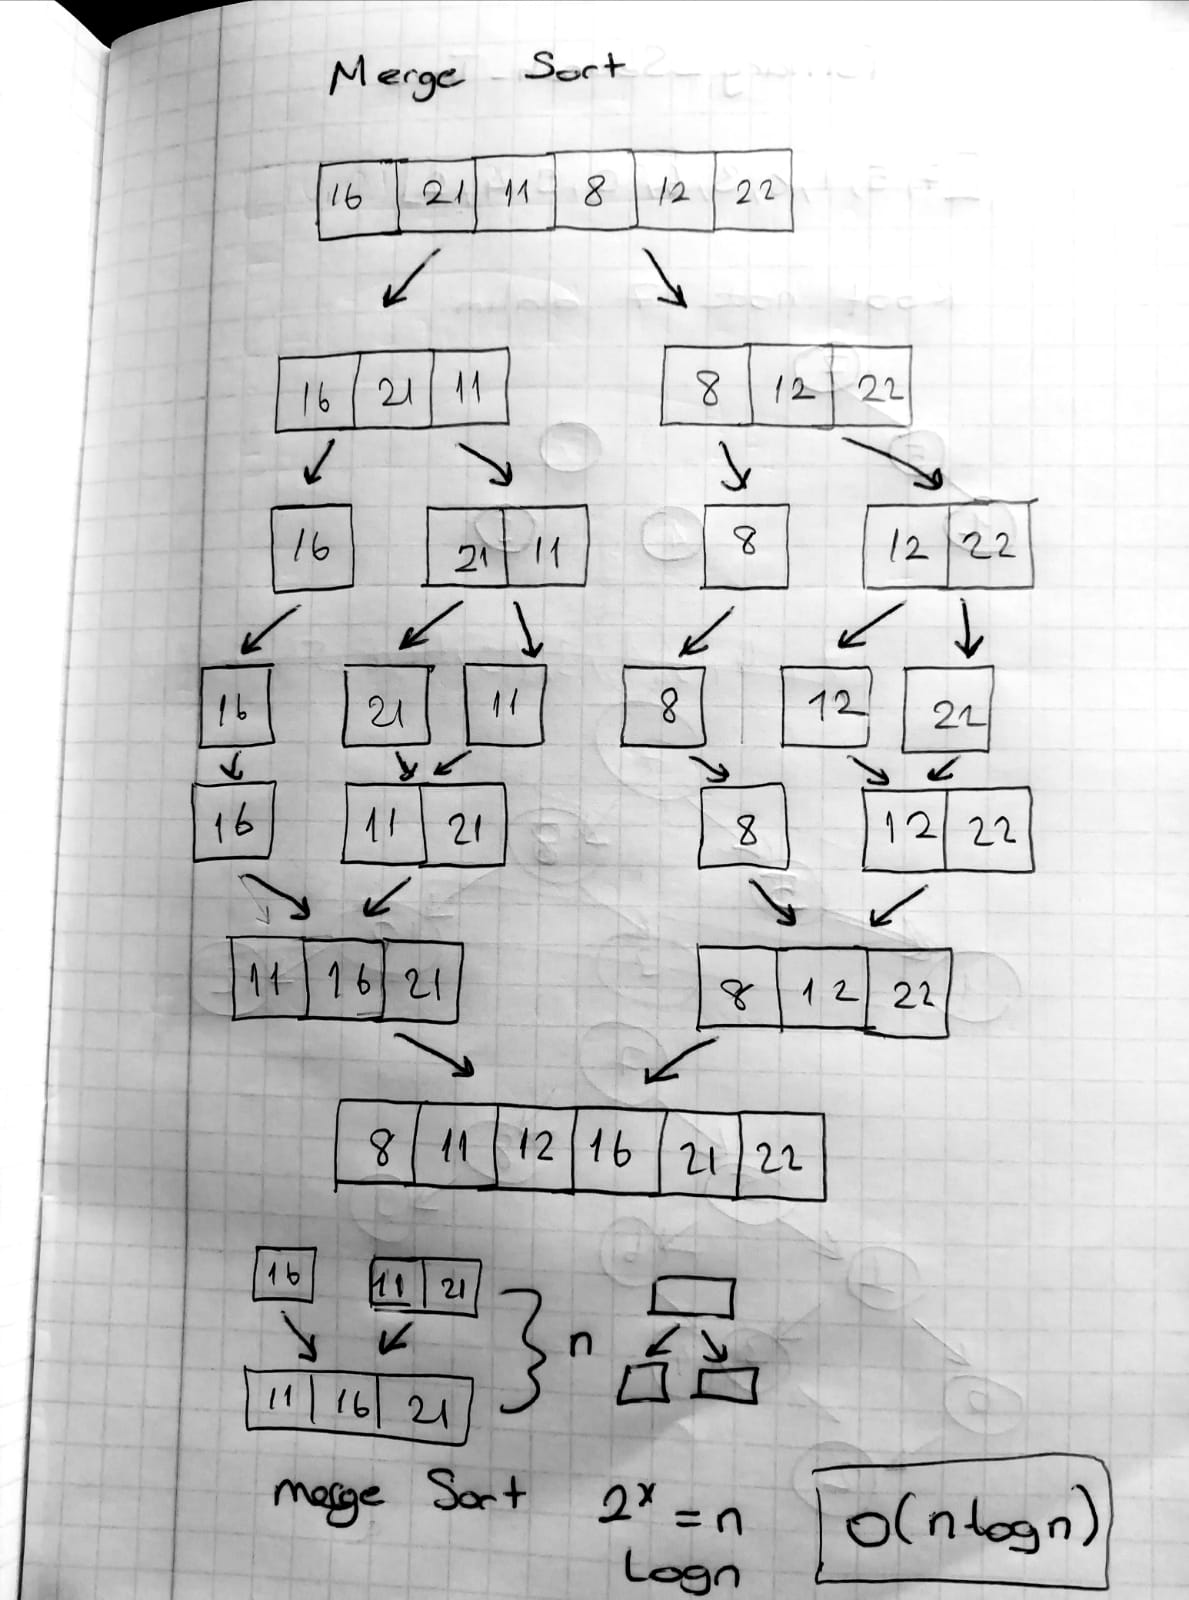 Merge Sort
16 21 11 8 12 22
16 21 11 8 12 22
16 21 11 8 12 22
16 21 11 8 12 22
16 11 21 8 12 22
11 16 21 8 12 22
8 11 12 16 21 22
16 11 21
n
11 16 21
merge Sort 2ˣ = n O(n.logn)
Logn